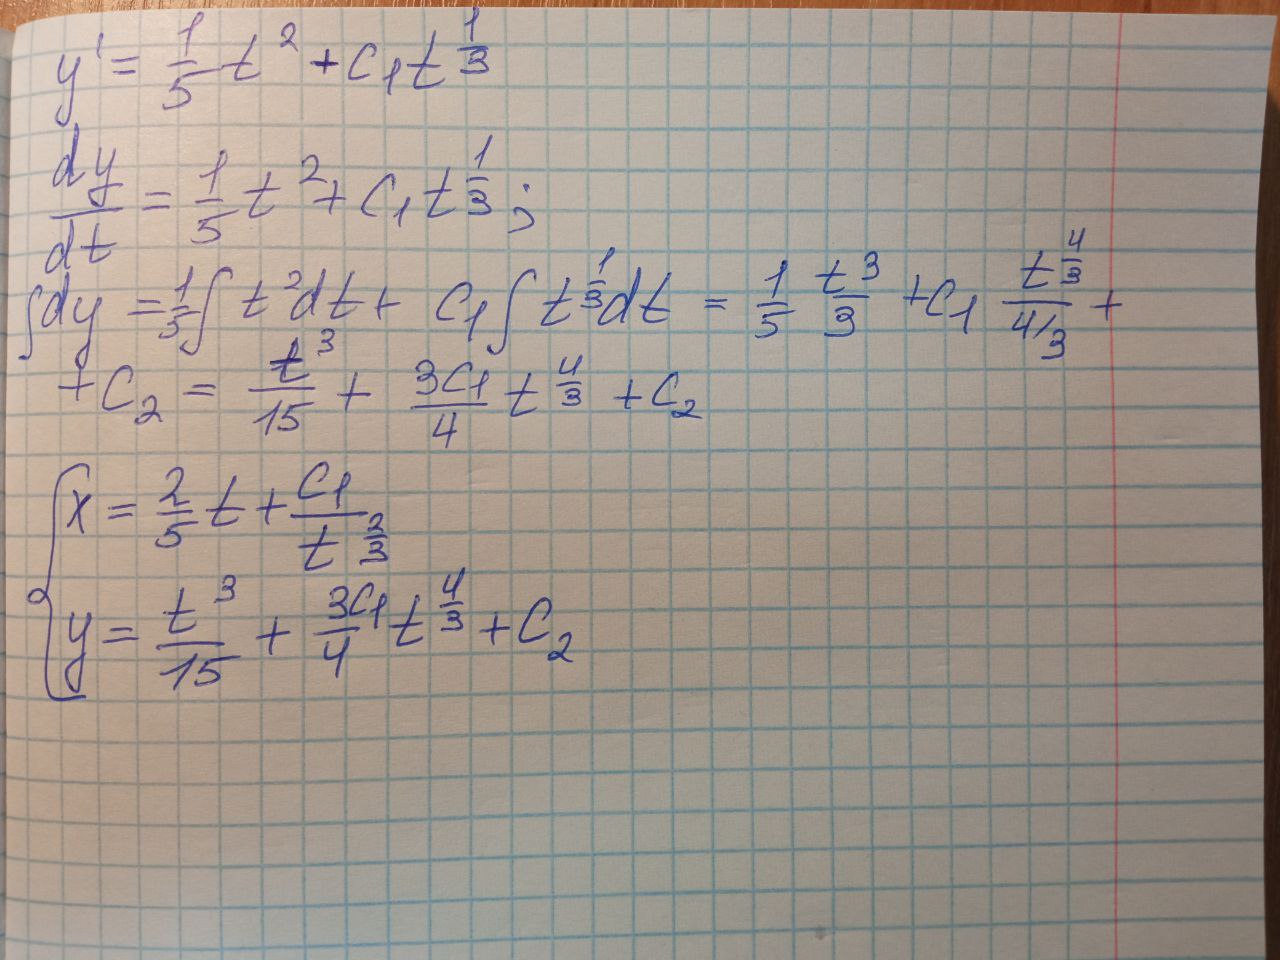 y' = 1/5 t^2 + C_1 t^{1/3}
dy/dt = 1/5 t^2 + C_1 t^{1/3} ;
∫dy = 1/5 ∫ t^2 dt + C_1 ∫ t^{1/3} dt = 1/5 t^3/3 + C_1 t^{4/3}/(4/3) +
+ C_2 = t^3/15 + 3C_1/4 t^{4/3} + C_2
{ x = 2/5 t + C_1/t^{2/3}
y = t^3/15 + 3C_1/4 t^{4/3} + C_2